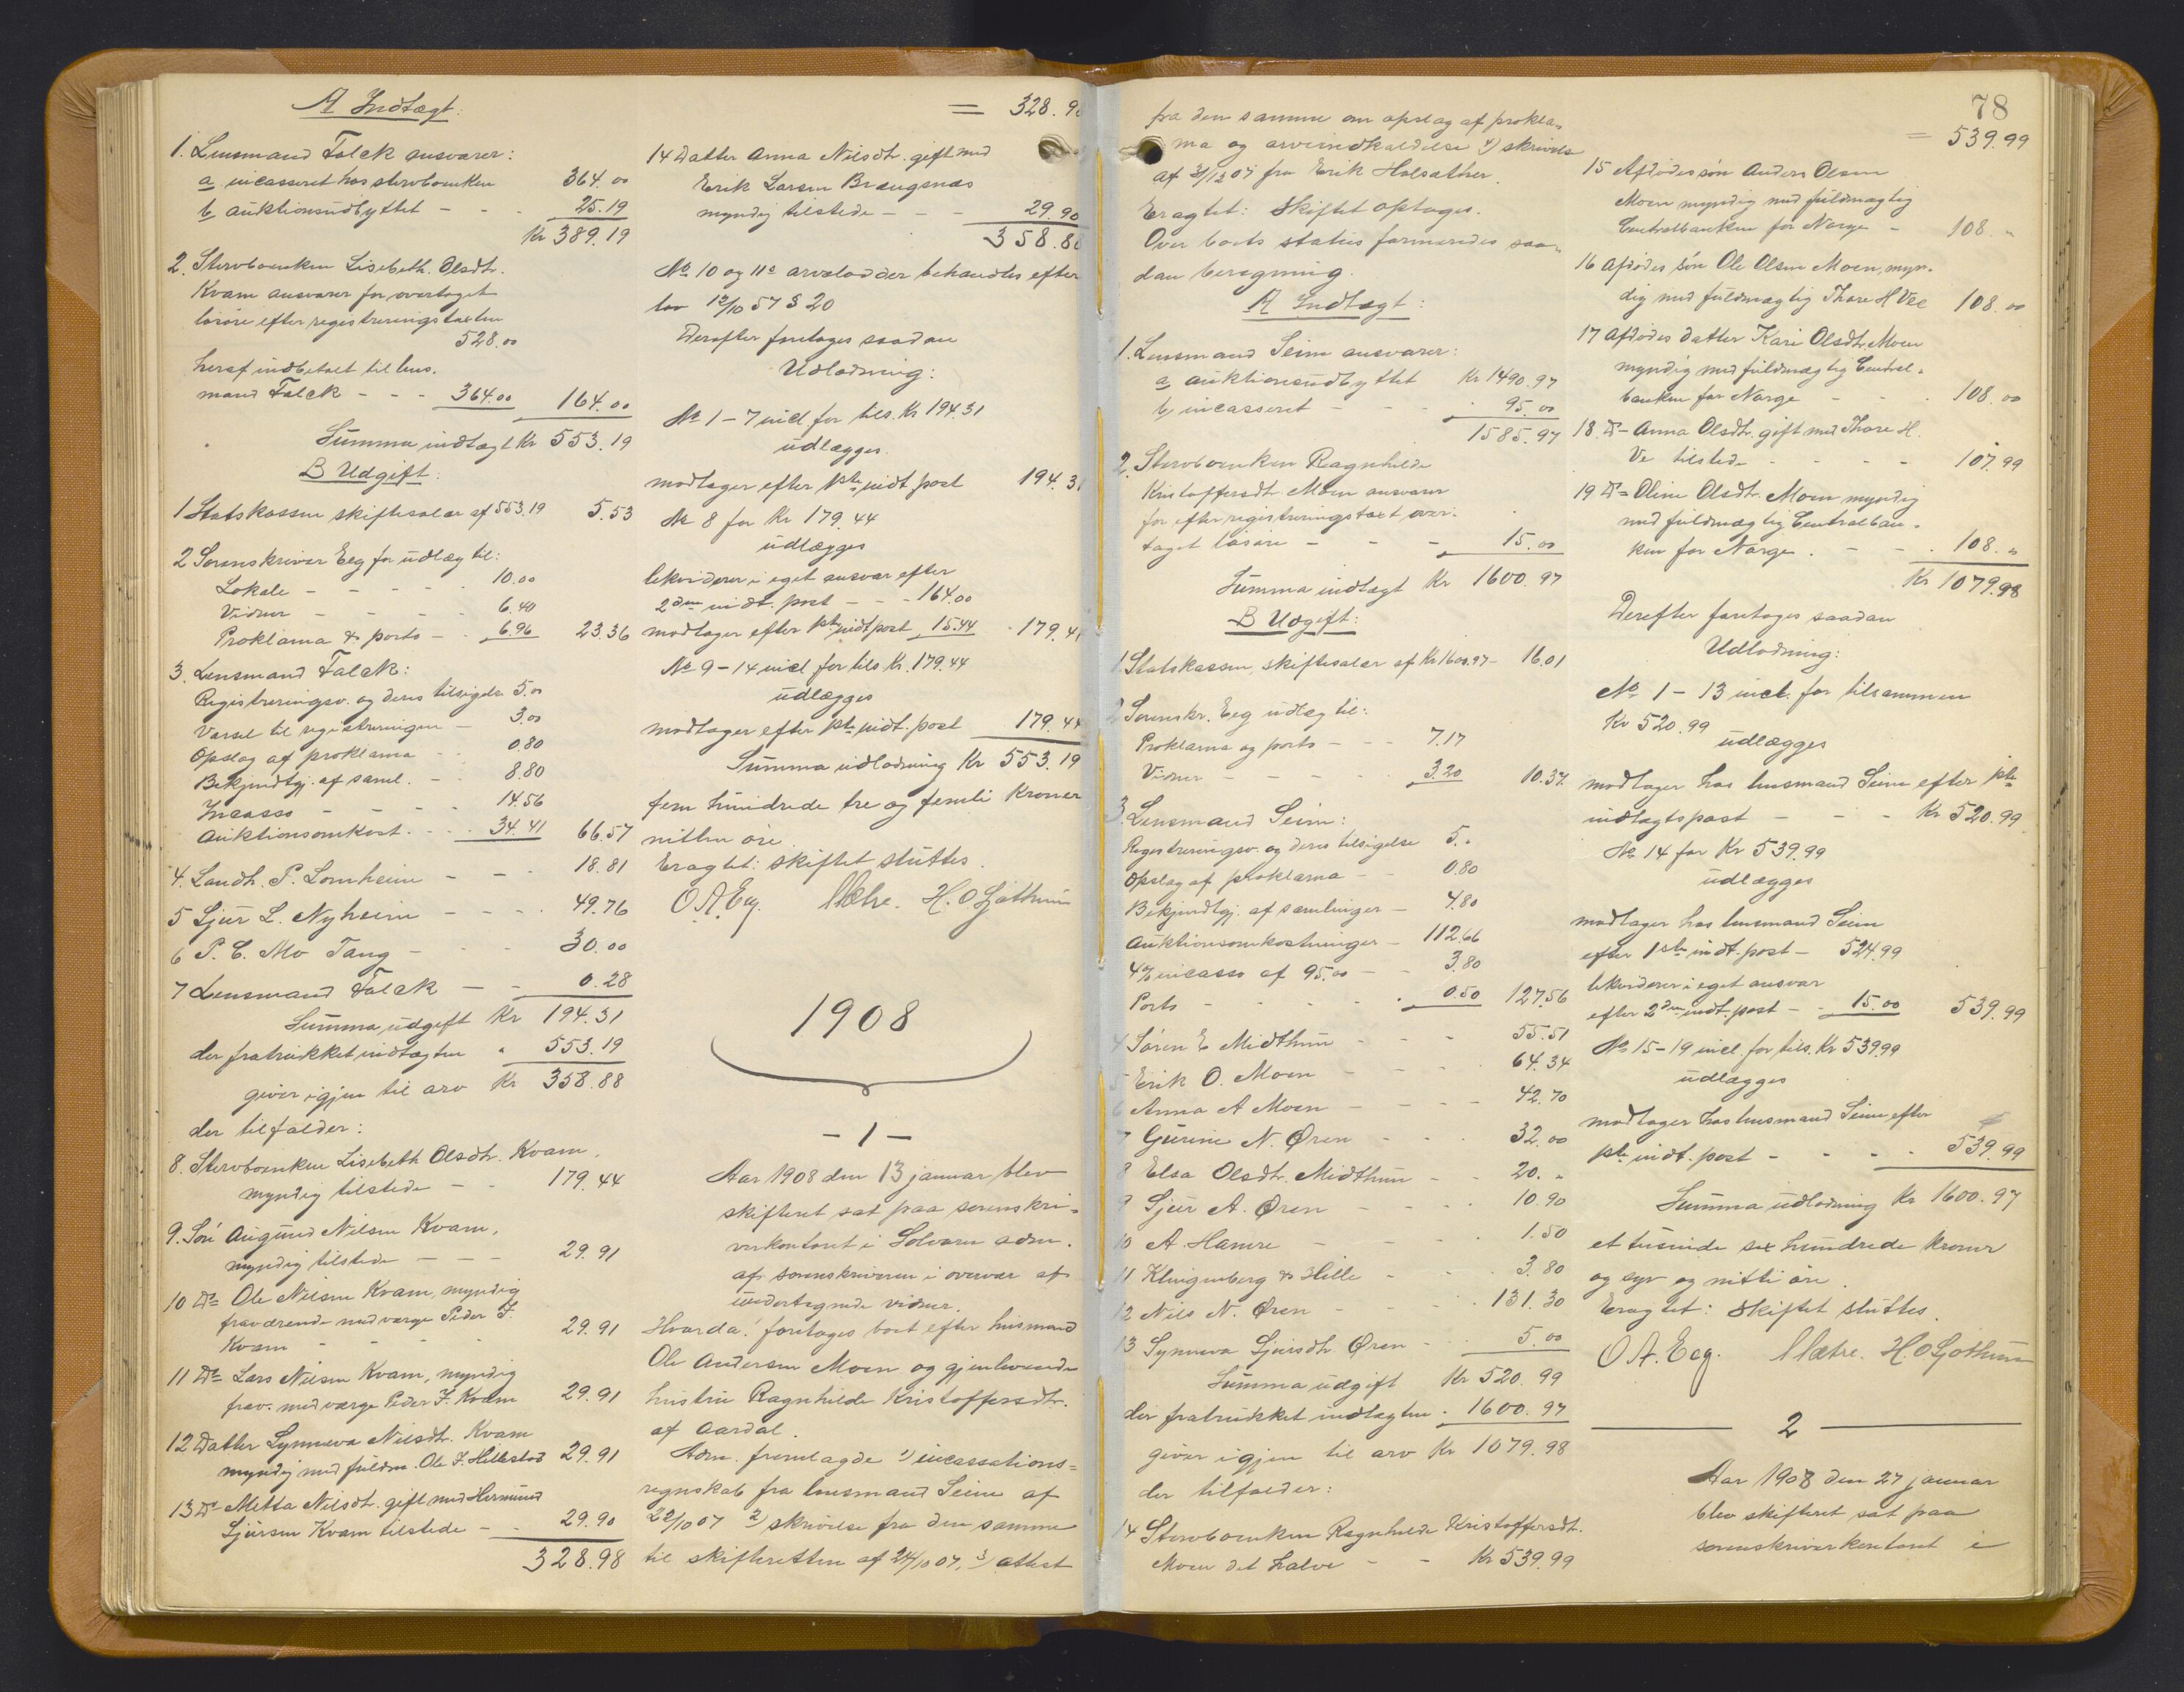 A Indtægt:
1. Lensmand Falck ansvarer:
a incasseret hos stervboenken 364.00
b auktionsudbyttet - - - 25.19
Kr 389.19
2. Stervboenken Lisebeth Olsdtr.
Kvam ansvarer for overtaget
løsøre efter registreringstaxten
528.00
heraf indbetalt til lens-
mand Falck - - - 364.00 164.00
Summa indtægt Kr 553.19
B Udgift:
1 Statskassen skiftesalær af 553.19 5.53
2 Sorenskriver Eeg for udlæg til:
Lokale - - - - 10.00
Vidner - - - - 6.40
Proklama & porto - - 6.96 23.36
3. Lensmand Falck:
Registreringsv. og deres tilsigelse 5.00
Varsel til registreringen - 3.00
Opslag af proklama - - 0.80
Bekjendtgj. af saml. - - 8.80
Incasso - - - - 14.56
Auktionsomkost. - - - 34.41 66.57
4. Landh. P. Lomheim - - - 18.81
5 Sjur L. Nyheim - - - - 49.76
6 P. C. Mo Tang - - - 30.00
7 Lensmand Falck - - 0.28
Summa udgift Kr 194.31
der fratrukket indtægten " 553.19
giver igjen til arv Kr 358.88
der tilfalder:
8. Stervboenken Lisebeth Olsdtr. Kvam,
myndig tilstede - - 179.44
9. Søn Augund Nilsen Kvam,
myndig tilstede - - - 29.91
10 Do Ole Nilsen Kvam, myndig
fraværende med værge Peder J.
Kvam - - - - 29.91
11 Do Lars Nilsen Kvam, myndig
frav. med værge Peder J. Kvam 29.91
12 Datter Synneva Nilsdtr. Kvam
myndig med fuldm. Ole J. Hillestad 29.91
13 Do Metta Nilsdtr. gift med Hermund
Sjursen Kvam tilstede - - 29.90
328.98
= 328.98
14 Datter Anna Nilsdtr. gift med
Erik Larsen Brængsnæs
myndig tilstede - - - 29.90
358.88
No 10 og 11s arvelodder behandles efter
lov 12/10 57 § 20
Derefter foretages saadan
Udlodning:
No 1 - 7 incl. for tils. Kr 194.31
udlægges
modtager efter 1ste indt post 194.31
No 8 for Kr 179.44
udlægges
likviderer i eget ansvar efter
2den indt. post - - - 164.00
modtager efter 1ste indt post 15.44 - 179.44
No 9 - 14 incl. for tils Kr. 179.44
udlægges
modtager efter 1ste indt. post 179.44
Summa udlodning Kr 553.19
fem hundrede tre og femti kroner
nitten øre.
Eragtet: skiftet sluttes.
O. A. Eeg. H. O Ljøthun
1908
- 1 -
Aar 1908 den 13 januar blev
skifteret sat paa sorenskri-
verkontoret i Solvorn adm.
af sorenskriveren i overvær af
undertegnede vidner.
Hvorda! foretoges boet efter husmand
Ole Andersen Moen og gjenlevende
hustru Ragnhilde Kristoffersdtr.
af Aardal.
Adm. fremlagde 1) incassations-
regnskab fra lensmand Seim af
22/10 07 2) skrivelse fra den samme
til skifteretten af 24/10 07, 3) attest
78
fra den samme om opslag af prokla-
ma og arveindkaldelse 4) skrivelse
af 31/12 07 fra Erik Holsæther.
Eragtet: Skiftet optages.
Over boets status formeredes saa-
dan beregning.
A Indtægt:
1. Lensmand Seim ansvarer:
a, auktionsudbyttet Kr 1490.97
b, incasseret - - - 95.00
1585.97
2. Stervboenken Ragnhilde
Kristoffersdtr. Moen ansvarer
for efter registreringstaxt over-
taget løsøre - - - 15.00
Summa indtægt Kr 1600.97
B Udgift:
1. Statskassen, skiftesalær af Kr 1600.97 - 16.01
2 Sorenskr. Eeg udlæg til:
Proklama og porto - - - 7.17
Vidner - - - - 3.20 10.37
3. Lensmand Seim:
Registreringsv. og deres tilsigelse 5."
Opslag af proklama - - 0.80
Bekjendtgj. af samlinger - 4.80
Auktionsomkostninger - 112.66
4% incasso af 95.00 - - 3.80
Porto - - - - 0.50 127.56
4 Søren E Midthun - - - 55.51
5 Erik O. Moen - - - 64.34
6 Anna A Moen - - - - 42.70
7 Gurine N. Øren - - - 32.00
8 Elsa Olsdtr. Midthun - - 20. "
9 Sjur A. Øren - - - - 10.90
10 A. Hamre - - - - 1.50
11 Klingenberg & Hille - - - 3.80
12 Nils N. Øren - - - - 131.30
13 Synneva Sjursdtr. Øren - - 5.00
Summa udgift Kr 520.99
der fratrukket indtægten " 1600.97
giver igjen til arv Kr 1079.98
der tilfalder:
14 Stervboenken Ragnhilde Kristoffersdtr.
Moen det halve - - Kr 539.99
= 539.99
15 Afdødes søn Anders Olsen
Moen myndig med fuldmægtig
Centralbanken for Norge - 108. "
16 Afdødes søn Ole Olsen Moen, myn-
dig med fuldmægtig Thore H Vee 108.00
17 Afdødes datter Kari Olsdtr. Moen
myndig med fuldmægtig Central-
banken for Norge - - - 108.00
18 Do Anna Olsdtr. gift med Thore H.
Ve tilstede - - - - 107.99
19 Do Oline Olsdtr. Moen myndig
med fuldmægtig Centralban-
ken for Norge. - - . 108. "
Kr 1079.98
Derefter foretages saadan
Udlodning:
No 1 - 13 incl. for tilsammen
Kr 520.99
udlægges
modtager hos lensmand Seim efter 1ste
indtægtspost - - - Kr 520.99
No 14 for Kr 539.99
udlægges
modtager hos lensmand Seim
efter 1ste indt. post - 524.99
likviderer i eget ansvar
efter 2den indt. post - - 15.00 539.99
No 15 - 19 incl. for tils. Kr 539.99
udlægges
modtager hos lensmand Seim efter
1ste indt. post - - - - 539.99
Summa udlodning Kr 1600.97
et tusinde sex hundrede kroner
og syv og nitti øre.
Eragtet: Skiftet sluttes.
O A. Eeg. H. O Ljøthun
2
Aar 1908 den 27 januar
blev skifteret sat paa
sorenskriverkontoret i